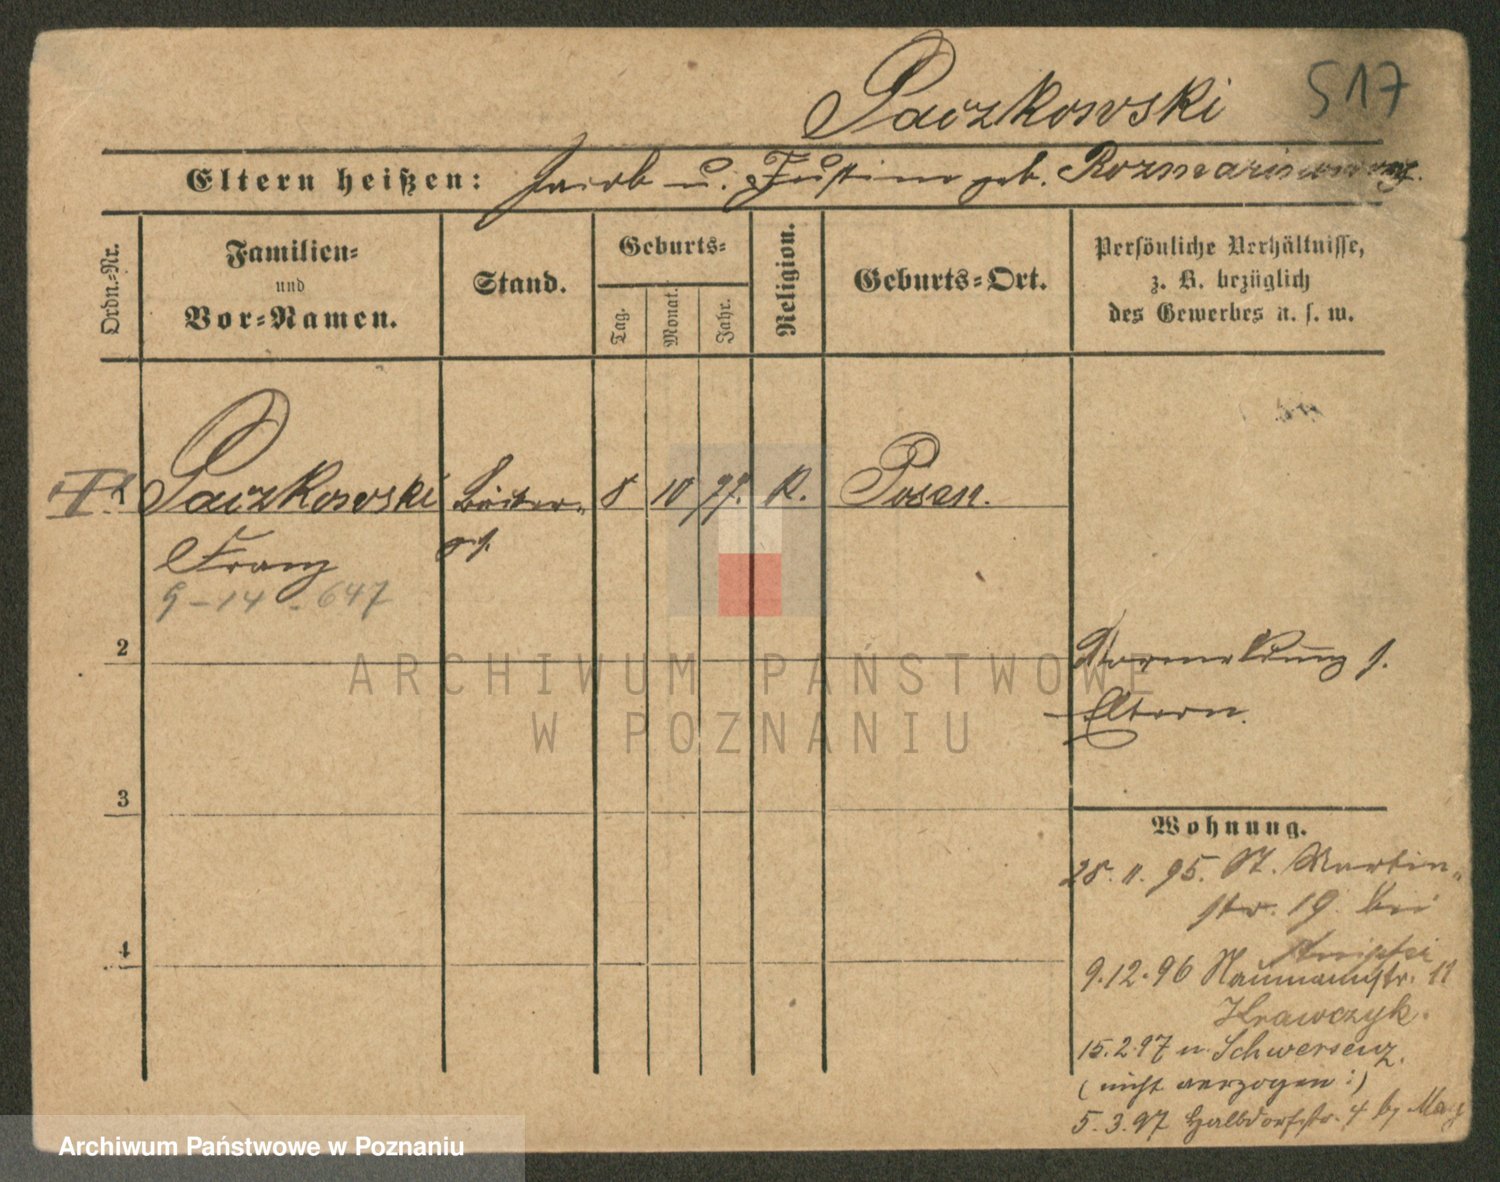 Paczkowski 517
Eltern heißen: Jacob u. Justine geb. Rozmarinowicz.
Ordn.-Nr.
Familien-
und
Vor-Namen.
Stand.
Geburts-
Tag.
Monat.
Jahr.
Religion.
Geburts-Ort.
Persönliche Verhältnisse,
z. B. bezüglich
des Gewerbes u. s. w.
Paczkowski 8 10 77. K. Posen.
Franz
9-14-647
2
Vormeldung s.
Eltern.
ARCHIWUM PAŃSTWOWE
W POZNANIU
3
Wohnung.
28. 11. 95. St. Martin-
str. 19 bei
4
9.12.96 Naumannstr. 11
Krawczyk.
15.2.97 n. Schwersenz.
(nicht verzogen:)
5.3.97 Halbdorfstr. 4 by
Archiwum Państwowe w Poznaniu